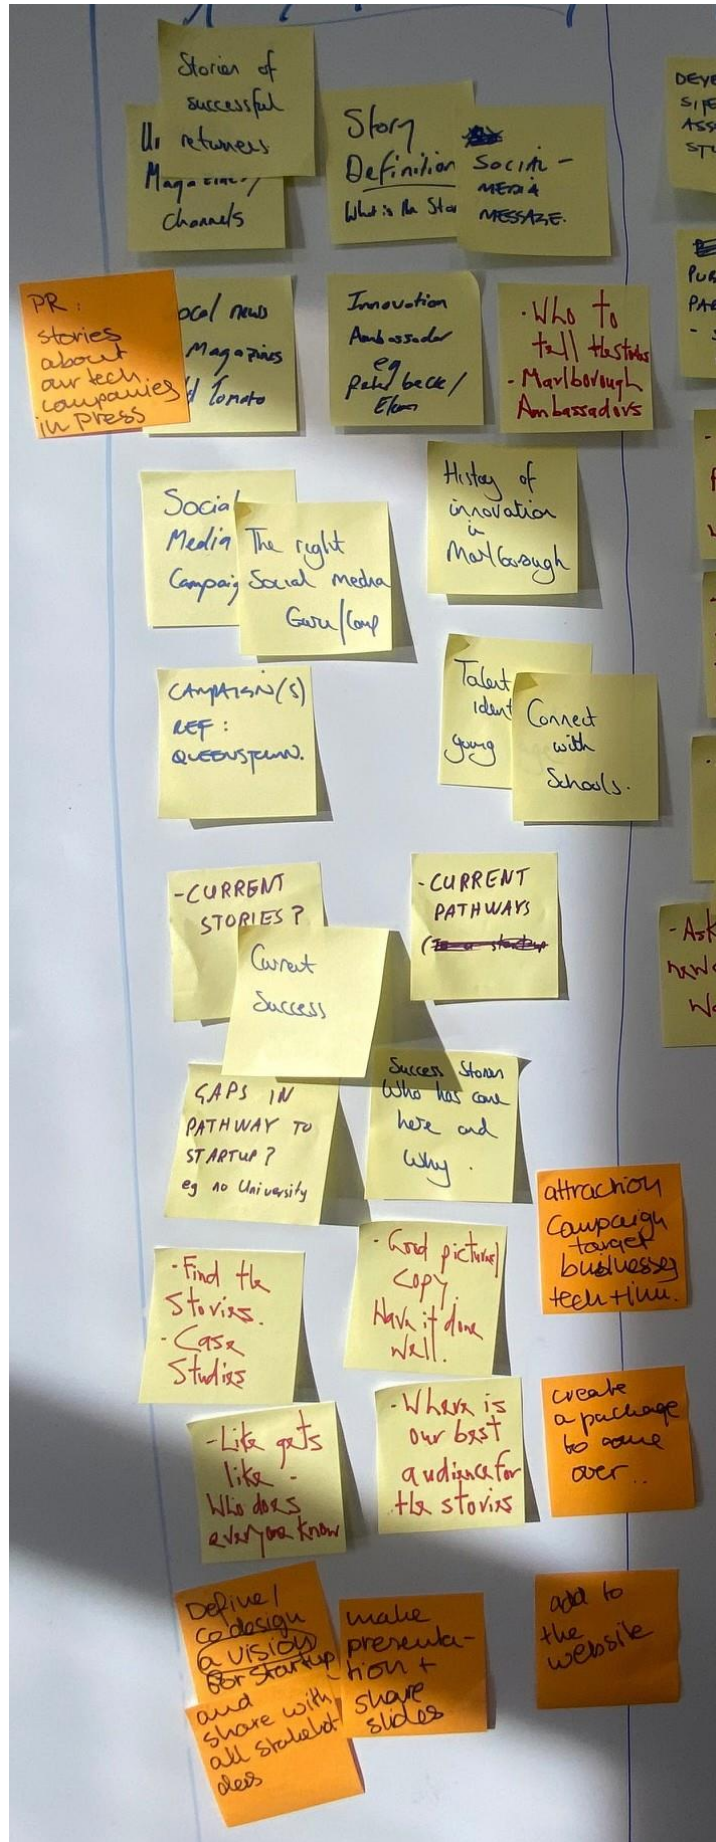 Stories of
successful
returners
Magazines/
channels
Story
Definition
What is the Stor
SOCIAL -
MEDIA
MESSAGE.
DEVE
ASS
STU
PR:
stories
about
our tech
companies
in Press
ocal news
Magazines
Tomato
Innovation
Ambassador
eg
beck/
- Who to
tell the stories
- Marlborough
Ambassadors
PUR
PAR
Social
Media
Campaig
The right
Social media
Guru/Comp
History of
innovation
in
Marlborough
CAMPAIGN(S)
REF:
QUEENSTOWN.
Talent
ident
young
Connect
with
Schools.
- CURRENT
STORIES?
Current
Success
- CURRENT
PATHWAYS
- Ask
GAPS IN
PATHWAY TO
STARTUP?
eg no University
Success Stories
Who has come
here and
Why.
attraction
Campaign
target
businesses
tech + inn.
- Find the
Stories.
- Case
Studies
- Good pictures/
copy.
Have it done
well.
- Like gets
like -
Who does
everyone know
- Where is
our best
audience for
the stories
create
a package
to come
over..
Define/
co design
a vision
for startup
and
share with
all stakehol-
ders
make
presenta-
tion +
share
slides
add to
the
website